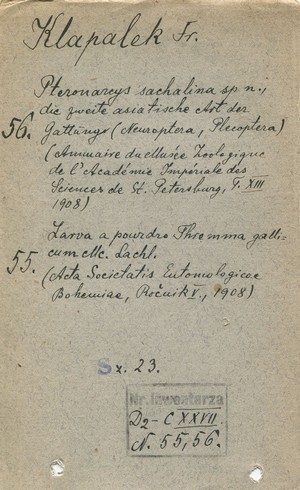 Klapalek Fr.
Pteronarcys sachalina sp n.,
die zweite asiatische Art der
56. Gattung (Neuroptera, Plecoptera)
(Annuaire du Musée Zoologique
de l'Académie Impériale des
Sciences de St. Petersburg, T. XIII
1908)
Larva a pouzdro Thremma galli-
55. cum Mc. Lachl.
(Acta Societatis Entomologicae
Bohemiae, Ročnik V., 1908)
Sz. 23.
Nr. Inwentarza
D2 - C XXVII
N. 55, 56.